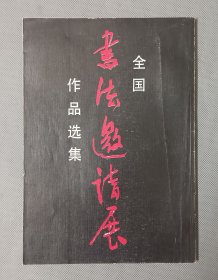 全国
书法邀请展
作品选集